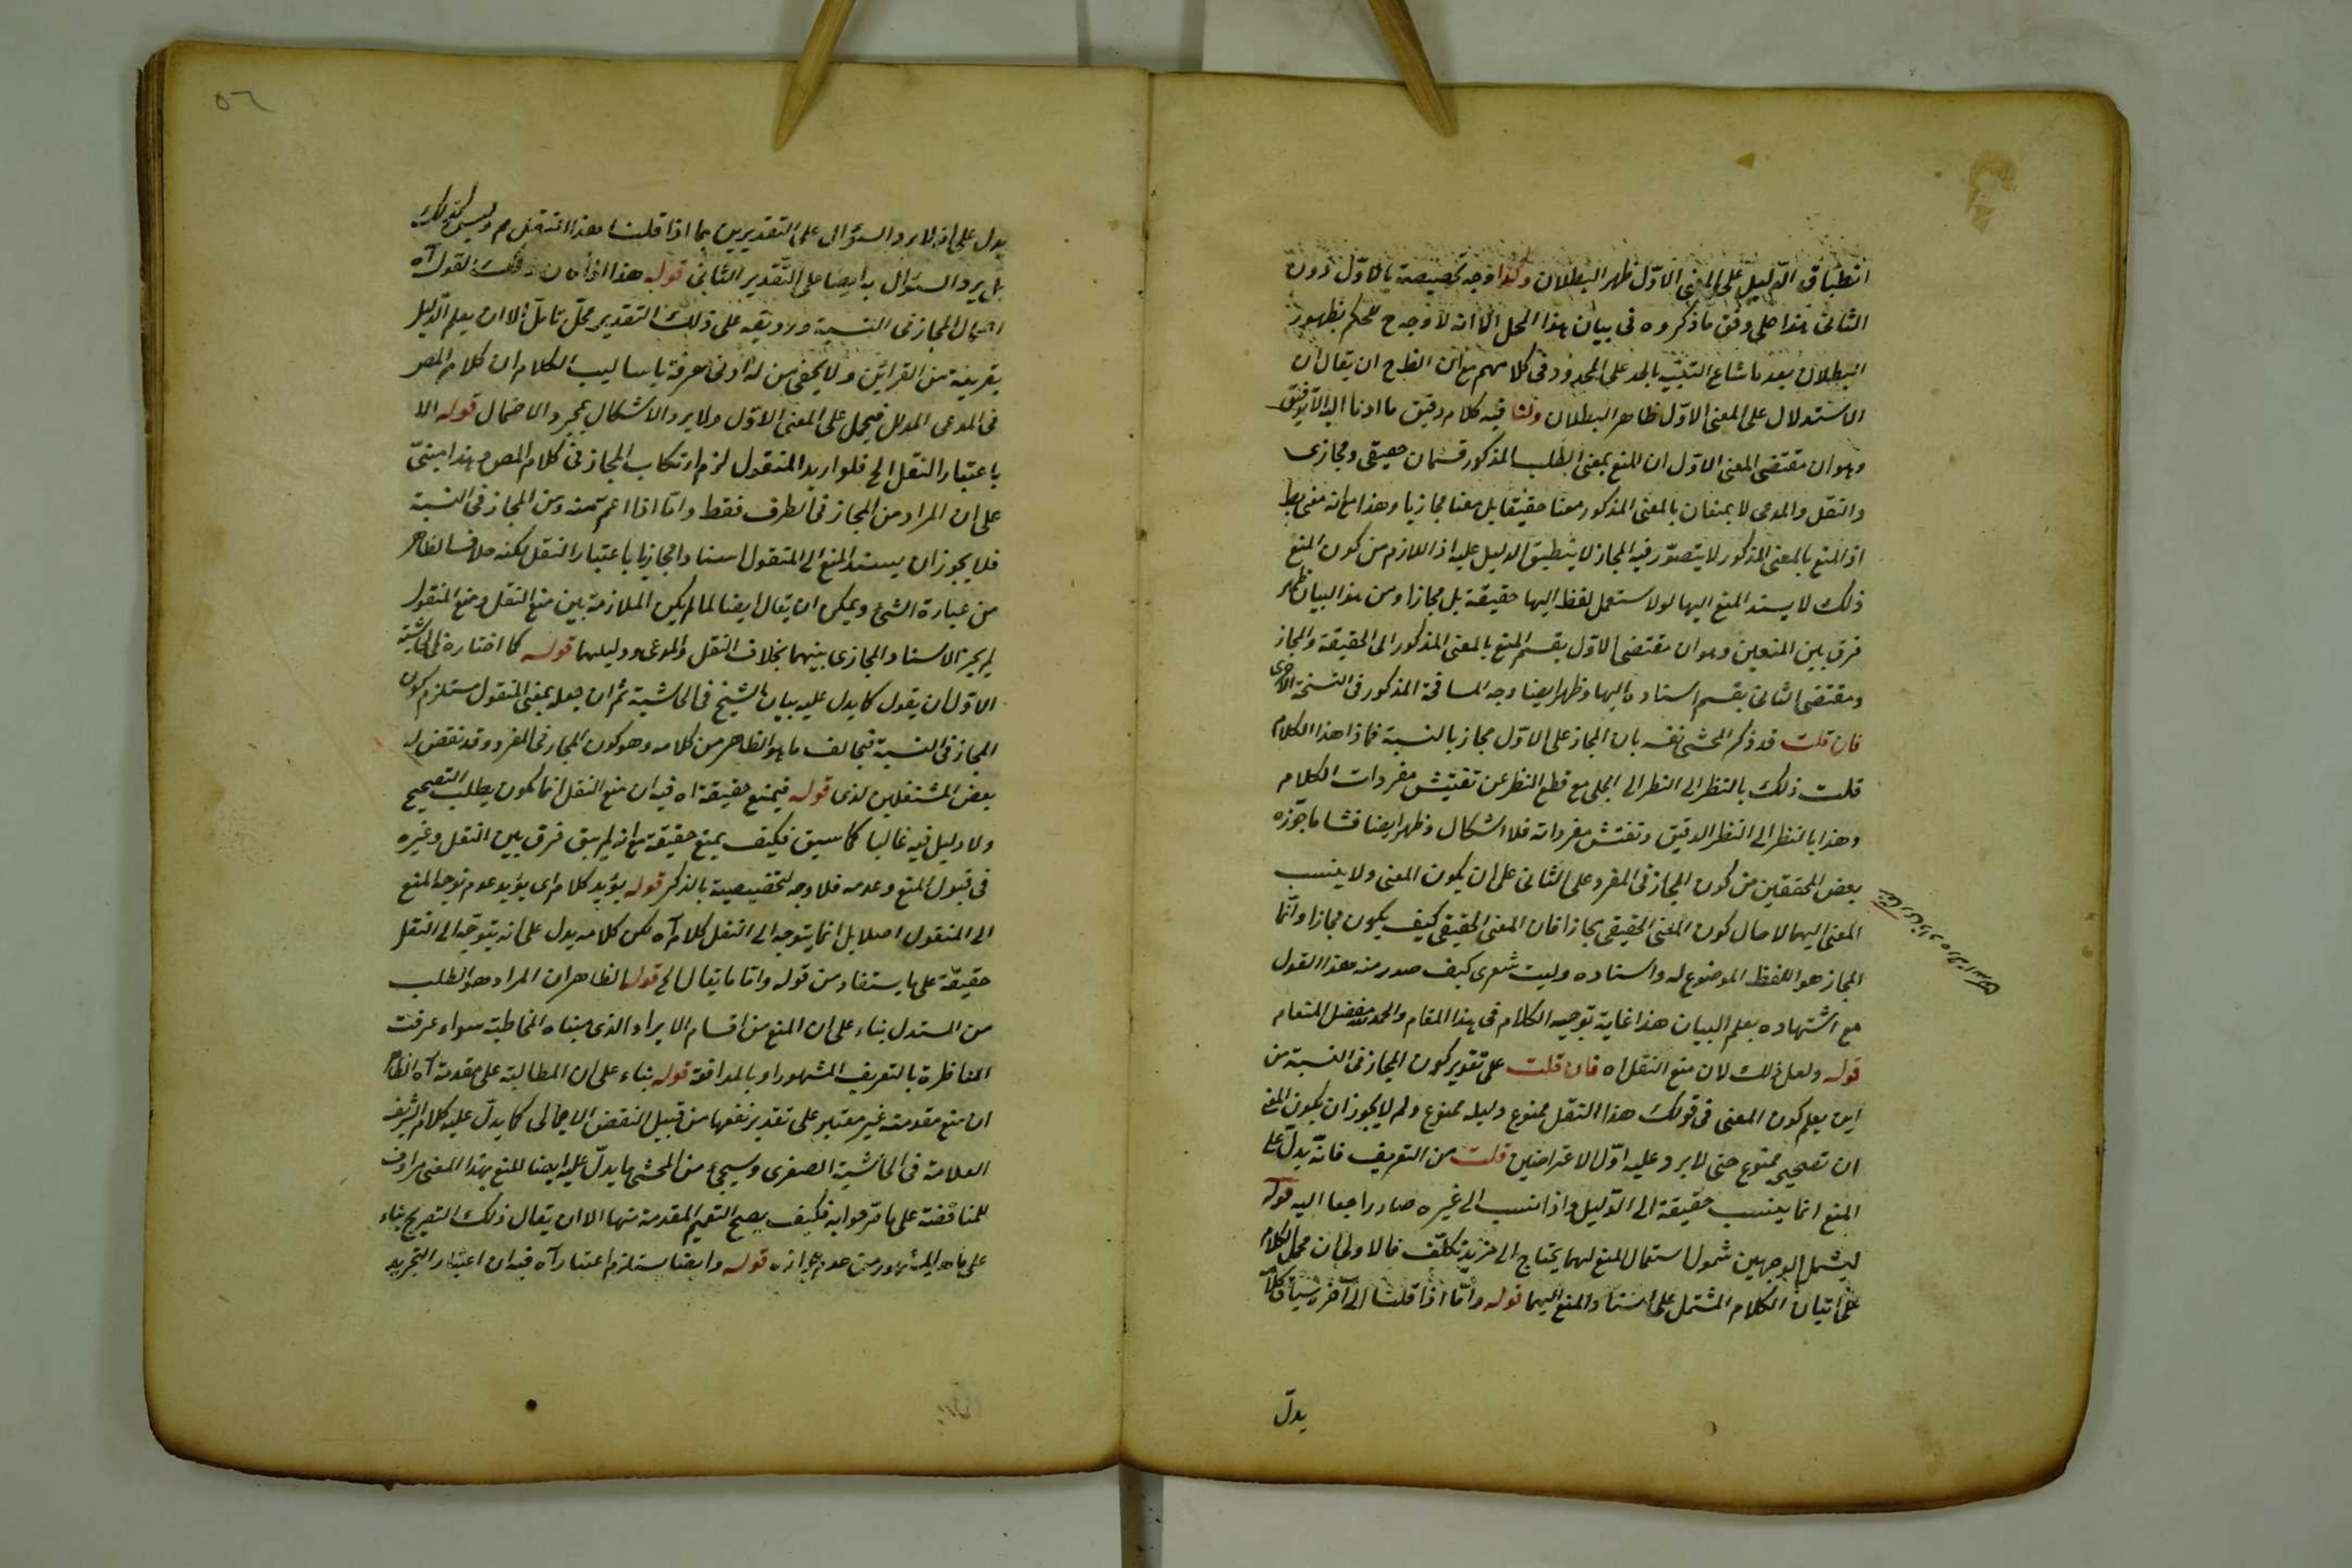 انطباق الدليل على المعنى الاول ظهر البطلان وكذا وجه تخصيصه بالاول دون
الثانى هذا على وفق ما ذكروه فى بيان هذا المحل الا انه لا وجه ح للحكم بظهور
البطلان بعد ما شاع التشبيه بالحد على المحدود فى كلامهم مع ان الظ ح ان يقال ان
الاستدلال على المعنى الاول ظاهر البطلان ولنا فيه كلام دقيق
وهو ان مقتضى المعنى الاول ان للمنع بمعنى الطلب المذكور قسمان حقيقى ومجازى
والنقل والمدعى لا يمنعان بالمعنى المذكور منعا حقيقيا بل منعا مجازيا وهذا مع انه
اذ المنع بالمعنى المذكور لا يتصور فيه المجاز لا ينطبق الدليل عليه اذ اللازم من كون المنع
ذلك لا يسند المنع اليها لولا استعمل لفظ اليها حقيقة بل مجازا ومن هذا البيان ظهر
فرق بين المنعين وهو ان مقتضى الاول يقسم المنع بالمعنى المذكور الى الحقيقة والمجاز
ومقتضى الثانى يقسم اسناده اليها وظهر ايضا وجه المسامحة المذكور فى النسخة الاخرى
فان قلت قد ذكر المحشى نفسه بان المجاز على الاول مجاز بالنسبة فماذا هذا الكلام
قلت ذلك بالنظر الى النظر الى الجلى مع قطع النظر عن تفتيش مفردات الكلام
وهذا بالنظر الى النظر الدقيق وتفتش مفرداته فلا اشكال وظهر ايضا فساد ما جوزه
بعض المحققين من كون المجاز فى المفرد على الثانى على ان يكون المعنى ولا ينسب
المعنى اليهما الا حال كون المعنى الحقيقى مجازا فان المعنى الحقيقى كيف يكون مجازا وانما
المجاز هو اللفظ الموضوع له واسناده وليت شعرى كيف صدر منه هذا القول
مع اشتهاده بعلم البيان هذا غاية توجيه الكلام فى هذا المقام والحمد لله مفضل المنعام
قوله ولعل ذلك لان منع النقل اه فان قلت على تقدير كون المجاز فى النسبة من
اين يعلم كون المعنى فى قولك هذا النقل ممنوع دليله ممنوع ولم لا يجوز ان يكون المعنى
ان تصحيحه ممنوع حتى لا يرد عليه اول الاعتراضين قلت من التعريف فانه يدل على
المنع انما ينسب حقيقة الى الدليل واذا نسب الى غيره صار راجعا اليه قوله
ليشمل الوجهين شمول استعمال المنع لهما يحتاج الى مزيد تكلف فالاولى ان محمل الكلام
على اتيان الكلام المشتمل على اسناد المنع اليهما قوله واما اذا قلنا الى آخره سياق كلامه
يدل
٥٦
يدل على انه لا يرد السؤال على التقديرين بما اذا قلنا هذا النقل م وليس كذلك
بل يرد السؤال به ايضا على التقدير الثانى قوله هذا اذا كان ذلك القول آه
احتمال المجاز فى النسبة ورديفه على ذلك التقدير محل تامل الا ان يعلم الدليل
بقرينة من القرائن ولا يخفى من له ادنى معرفة باساليب الكلام ان كلام المصر
فى المدعى المدلل فيحمل على المعنى الاول ولا يرد الاشكال بمجرد الاحتمال قوله الا
باعتبار النقل الخ فلو اريد المنقول لزم ارتكاب المجاز فى كلام المصر هذا مبنى
على ان المراد من المجاز فى الطرف فقط واما اذا اعم منه ومن المجاز فى النسبة
فلا يجوز ان يسند المنع الى المنقول اسنادا مجازيا باعتبار النقل لكنه خلاف الظاهر
من عبارة الشئ ويمكن ان يقال ايضا لما لم يكن الملازمة بين منع النقل ومنع المنقول
لم يجز الاسناد المجازى بينهما بخلاف النقل والمدعى ودليلهما قوله كما اختاره فى الحاشية
الاول ان يقول كما يدل عليه بيان الشيخ فى الحاشية ثم ان جعله بمعنى المنقول مستلزم كون
المجاز فى النسبة فيخالف ما هو الظاهر من كلامه وهو كون المجاز فى المفرد وقد نقض له
بعض المشتغلين لدى قوله فيمنع حقيقة اه فيه ان منع النقل انما يكون بطلب التصحيح
ولا دليل فيه غالبا كما سبق فكيف يمنع حقيقة مع انه لم يبق فرق بين النقل وغيره
فى قبول المنع وعدمه فلا وجه لتخصيصه بالذكر قوله يؤيد كلام اى يؤيد عدم توجه المنع
الى المنقول اصلا بل انما يتوجه الى النقل كلام آه لكن كلامه يدل على انه يتوجه الى النقل
حقيقة على ما يستفاد من قوله واما ما يقال الخ قوله الظاهر ان المراد هو الطلب
من المستدل بناء على ان المنع من اقسام الايراد الذى مبناه المخاطبة سواء عرفت
المناظرة بالتعريف المشهور او بالمدافعة قوله بناء على ان المطالبة على مقدمة آه الظاهر
ان منع مقدمة غير معتبر على تقدير نفعها من قبيل النقض الاجمالى كما يدل عليه كلام الشريف
العلامة فى الحاشية الصغرى وسيجئ من المحشى ما يدل عليه ايضا للمنع بهذا المعنى مرادف
للمناقضة على ما صرحوا به فكيف يصح التعميم المقدمة منها الا ان يقال ذلك التصريح بناء
على ما هو المشهور من عدم جوازه قوله وايضا يستلزم اعتبار آه فيه ان اعتبار التجريد